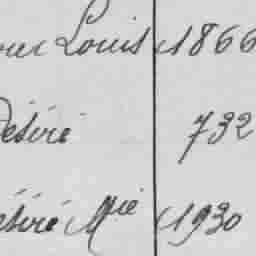 Louis 1866
Désiré 732
Désiré Mie 1930